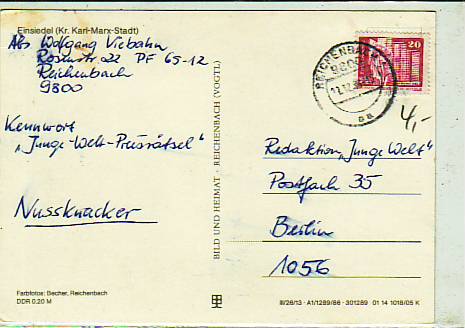 Einsiedel (Kr. Karl-Marx-Stadt)
Abs Wolfgang Viebahn
Rosenstr. 22 PF 65-12
Reichenbach
9800
Kennwort
„Junge-Welt-Preisrätsel"
Nussknacker
Farbfotos: Becher, Reichenbach
DDR 0,20 M
BILD UND HEIMAT · REICHENBACH (VOGTL)
REICHENBACH
9800
20
4,-
Redaktion „Junge Welt"
Postfach 35
Berlin
1056
III/26/13 · A1/1289/86 · 301289 01 14 1018/05 K